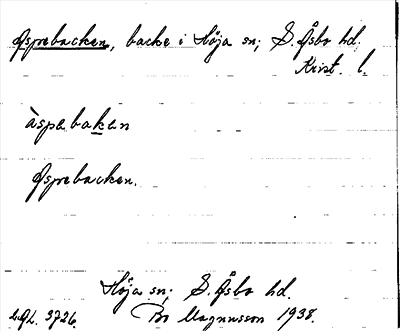 Asprebacken, backe i Höja sn; S. Åsbo hd.
Krist. l.
àspəbakən
Asprebacken.
Höja sn; S. Åsbo hd.
3726. Bo Magnusson 1938.